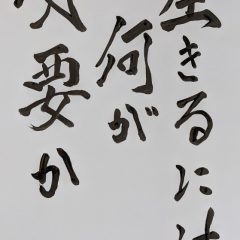 生きるには
何が
必要か